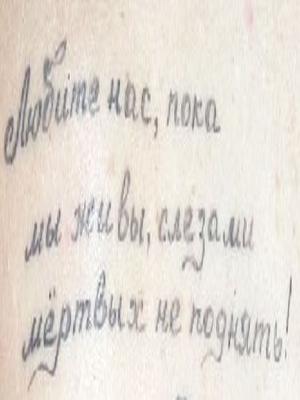 Любите нас, пока
мы живы, слезами
мёртвых не поднять!